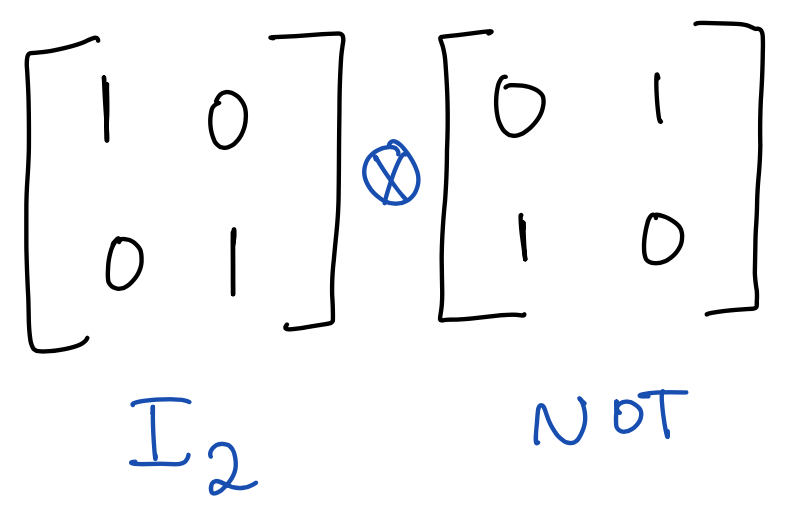 1 0 ⊗ 0 1
0 1 1 0
I₂ NOT